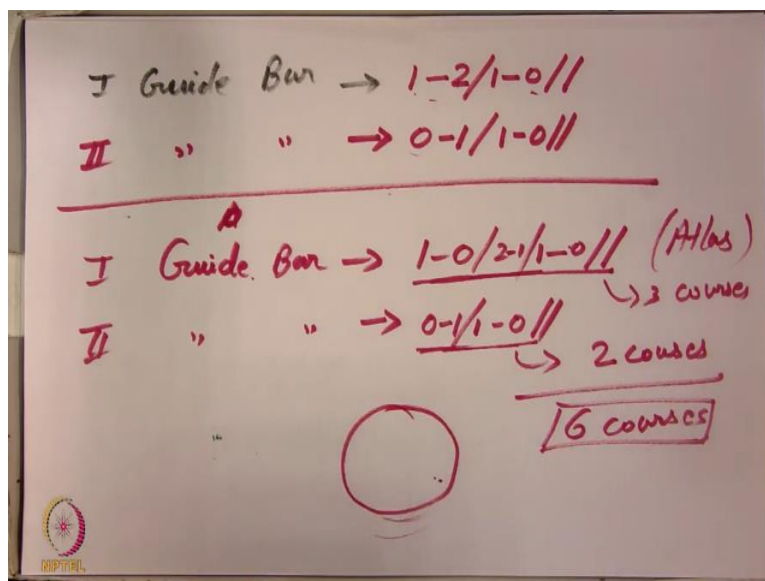 I Guide Bar → 1-2/1-0//
II " " → 0-1/1-0//
I Guide Bar → 1-0/2-1/1-0// (Atlas)
↳ 3 courses
II " " → 0-1/1-0//
↳ 2 couses
6 courses
NPTEL